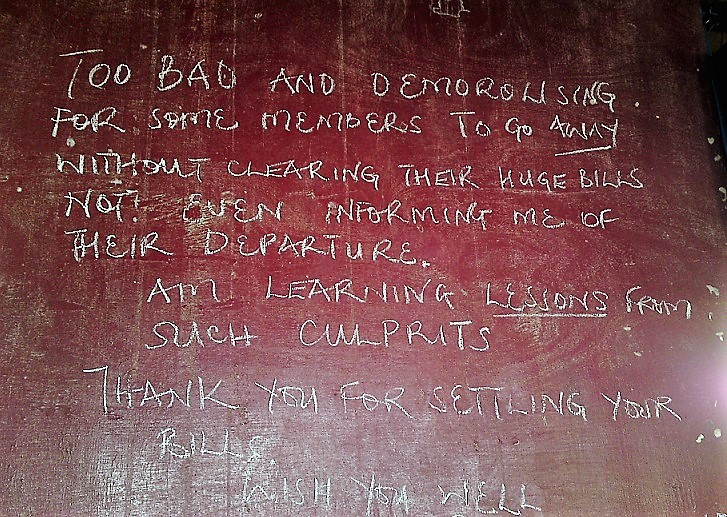 TOO BAD AND DEMOROLISING.
FOR SOME MEMBERS TO GO AWAY
WITHOUT CLEARING THEIR HUGE BILLS
NOT! EVEN INFORMING ME OF
THEIR DEPARTURE.
AM LEARNING LESSONS FROM
SUCH CULPRITS
THANK YOU FOR SETTLING YOUR
BILLS.
WISH YOU WELL